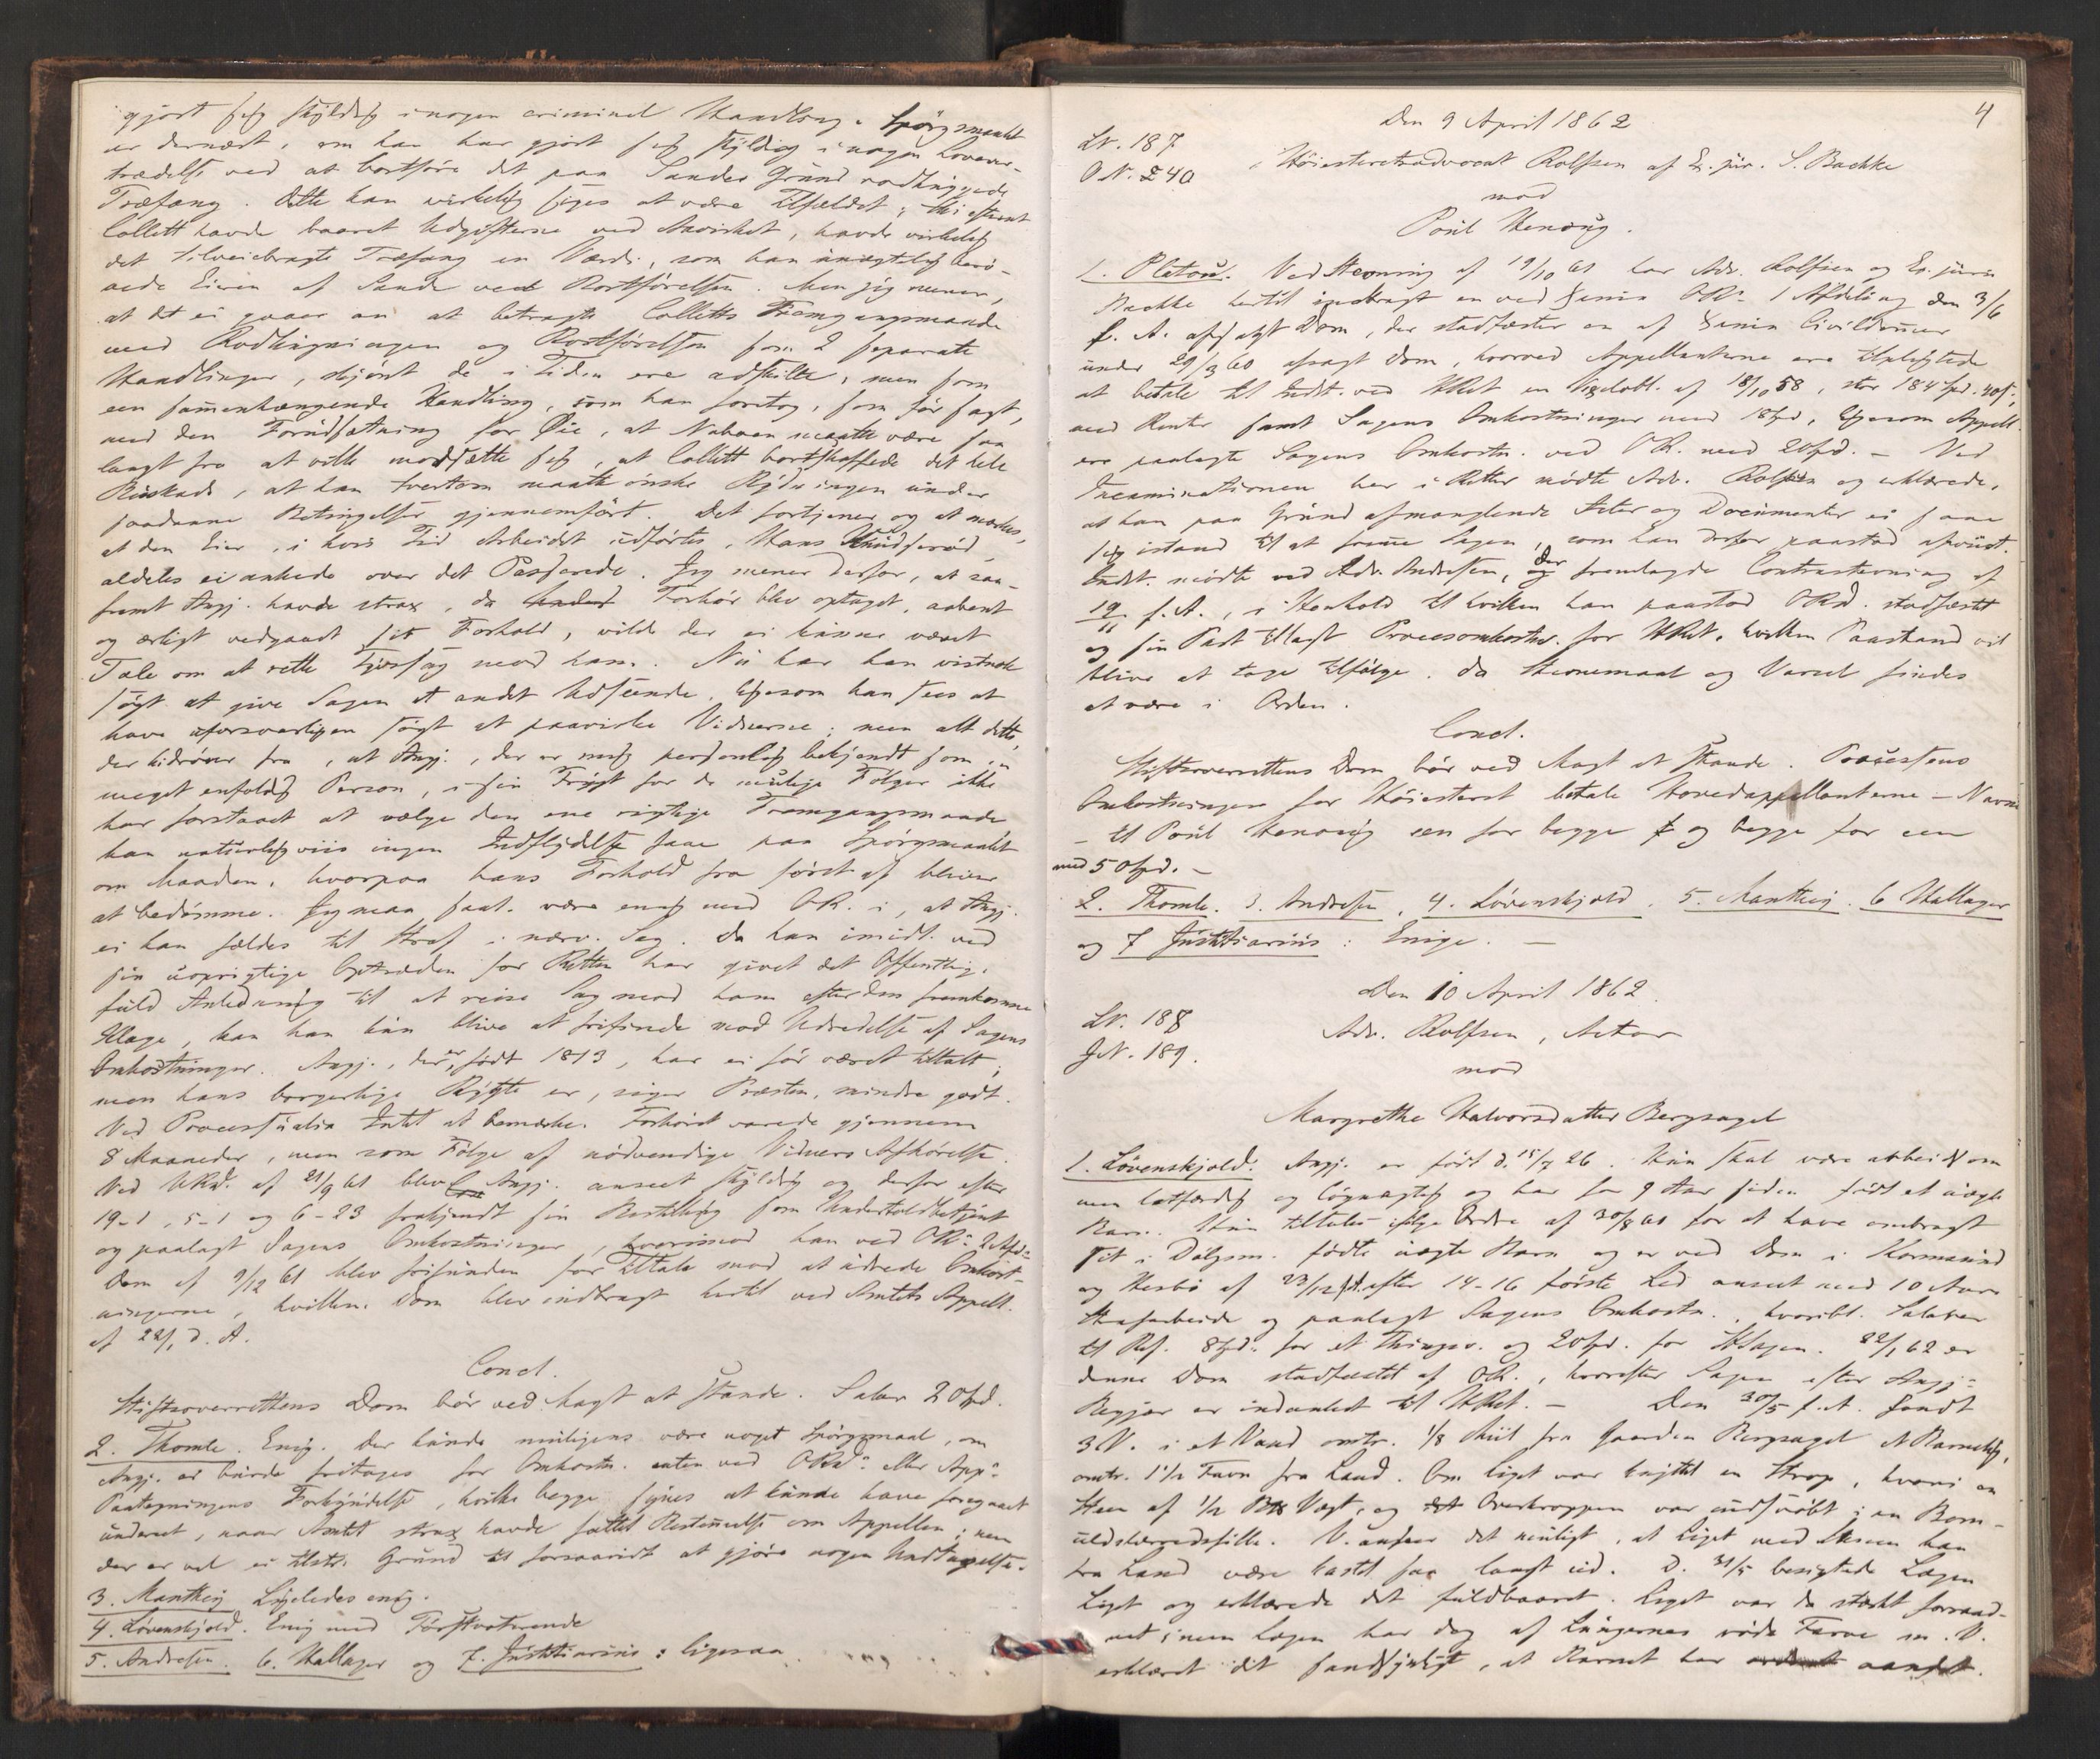 gjort sig skyldig i nogen criminel Handling. Spörgsmaalet
er dernæst, om han har gjort sig skyldig i nogen Lovover-
trædelse ved at bortföre det paa Sandes Grund rodhuggede
Træfang. Dette kan virkelig siges at være Tilfældet; thi efterat
Collett havde baaret Udgifterne ved Anviket, havde virkelig
det tilveiebragte Træfang en Værdi, som han unægtelig berö-
vede Eieren af Sande ved Bortförelsen. Men jeg mener,
at det ei gaaer an at betragte Colletts Fremgangsmaade
med Rodhugningen og Bortförelsen som 2 separate
Handlinger, skjönt de i Tiden ere adskilte, men som
een sammenhængende Handling, som han foretog, som för sagt,
med den Forudsætning for Öie, at Naboen maatte være saa
langt fra at ville modsætte sig, at Collett bortskaffede det hele
Buskads, at han tvertom maatte önske Rydningen under
saadanne Betingelser gjennemfört. Det fortjener og at mærkes,
at den Eier, i hvis Tid Arbeidet udförtes, Hans Knudseröd,
aldeles ei ankede over det Passerede. Jeg mener derfor, at saa-
fremt Angj. havde strax, da Forhör blev optaget, aabent
og ærligt vedgaaet sit Forhold, vilde der ei kunne været
Tale om at rette Tyvssag mod ham. Nu har han vistnok
sögt at give Sagen et andet Udseende, ligesom han sees at
have uforsvarligen sögt at paavirke Vidnerne; men alt dette,
der hidrörer fra, at Angj., der er mig personlig bekjendt som en
meget enfoldig Person, i sin Frygt for de mulige Fölger ikke
har forstaaet at vælge den ene rigtige Fremgangsmaade
kan naturligviis ingen Indflydelse faae paa Spörgsmaalet
om Maaden, hvorpaa hans Forhold fra först af bliver
at bedömme. Jeg maa saal. være enig med OR. i, at Angj.
ei kan fældes til Straf i nærv. Sag. Da han imidl. ved
sin uoprigtige Optræden for Retten har givet det Offentlige
fuld Anledning til at reise Sag mod ham efter den fremkomne
Klage, kan han kun blive at frifinde mod Udredelse af Sagens
Omkostninger. Angj., der er födt 1813, har ei för været tiltalt;
men hans borgerlige Rygte er, siger Præsten, mindre godt.
Ved Processualia Intet at bemærke. Forhöret varede gjennem
8 Maaneder, men som Fölge af nödvendige Vidners Afhörelse.
Ved URD. af 21/9 61 blev Angj. anseet skyldig og derfor efter
19-1, 5-1 og 6-23 frakjendt sin Bestilling som Undertoldbetjent
og paalagt Sagens Omkostninger, hvorimod han ved ORs 2 Afd.
Dom af 9/12 61 blev frifunden for Tiltale mod at udrede Omkost-
ningerne, hvilken Dom blev indbragt hertil ved Amtets Appell.
af 22/1 d. A.
Concl.
Stiftsoverrettens Dom bör ved Magt at stande. Salær 20 Spd.
2. Thomle. Enig. Der kunde muligens være noget Spörgsmaal, om
Angj. ei burde fritages for Omkostn. enten ved ORDs eller App.
Paategningens Forkyndelse, hvilke begge synes at kunde have foregaaet
underet, naar Amtet strax havde fattet Bestemmelse om Appellen; men
der er vel ei tilstr. Grund til forsaavidt at gjöre nogen Undtagelse.
3. Manthey Ligeledes enig.
4. Lövenskjold. Enig med Förstvoterende
5. Andresen. 6. Hallager og 7. Justitiarius: ligesaa.
4
Den 9 April 1862
LN. 187
O N. 240
Höiesteretsadvocat Rolfsen af Ex. jur. S. Bachke
mod
Poul Henoug.
1. Pleton. Ved Stevning af 19/10 61 har Adv. Rolfsen og Ex. juris
Bachke hertil indbragt en ved OR 1 Afdeling den 3/6
f. A. afsagt Dom, der stadfæster en af Civildommer
under 29/3 60 afsagt Dom, hvorved Appellanterne ere tilpligtede
at betale til Indst. ved HRet en af 18/10 58, stor 184 Spd. 40 s,
med Renter samt Sagens Omkostninger med 18 Spd, ligesom Appell.
ere paalagte Sagens Omkostn. ved OR. med 20 Spd. - Ved
Incaminationen her i Retten mödte Adv. Rolfsen og erklærede,
at han paa Grund af manglende Acter og Documenter ei saae
sig istand til at fremme Sagen, som han derfor paastod afviist.
Indst. mödte ved Adv. Andresen, der fremlagde Contrastevning af
19/11 f. A., i Henhold til hvilken han paastod ORD. stadfæstet
og sin Part tillagt Procesomkostn. for HRet, hvilken Paastand vil
blive at tage tilfölge, da Stevnemaal og Varsel findes
at være i Orden.
Concl.
Stiftsoverrettens Dom bör ved Magt at stande. Processens
Omkostninger for Höiesteret betale Hovedappellanterne - Navne
- til Poul Henoug een for begge og begge for een
med 50 Spd. -
2. Thomle. 3. Andresen. 4. Lövenskjold. 5. Manthey. 6 Hallager
og 7 Justitiarius: Enige. -
Den 10 April 1862.
LN. 188
J N. 189.
Adv. Rolfsen, Actor
mod
Margrethe Halvorsdatter Bergsagel
1. Lövenskjold. Angj. er födt d. 15/7 26. Hun skal være arbeidsom
men letfærdig og lögnagtig og har for 9 Aar siden födt et uægte
Barn. Hun tiltales ifölge Ordre af 30/8 61 for at have ombragt
sit i Dölgsm. födte uægte Barn og er ved Dom i Karmsund
og Hesbö af 23/12 f.A. efter 14-16 förste Led anseet med 10 Aars
Strafarbeide og paalagt Sagens Omkostn., hvoribl. Salarer
til Ref. 8 Spd. for et Thingsv. og 20 Spd. for HSagen. 22/1 62 er
denne Dom stadfæstet af OR., hvorefter Sagen efter Angj.
Begjær er indanket til HRet. - Den 30/5 f. A. fandt
3 V. i et Vand omtr. 1/8 Miil fra Gaarden Bergsagel et Barnelig,
omtr. 1 1/2 Favn fra Land. Om Liget var knyttet en Strop, hvori en
Steen af 1/2 B Vægt, og Overkroppen var indsvöbt i en Bom-
uldslærredsfille. V. anseer det muligt, at Liget med Stenen kan
fra Land være kastet saa langt ud. D. 31/5 besigtede Lægen
Liget og erklærede det fuldbaaret. Liget var da stærkt forraad-
net; men Lægen har dog af Lungernes röde Farve m. V.
erklæret det sandsynligt, at Barnet har aandet.